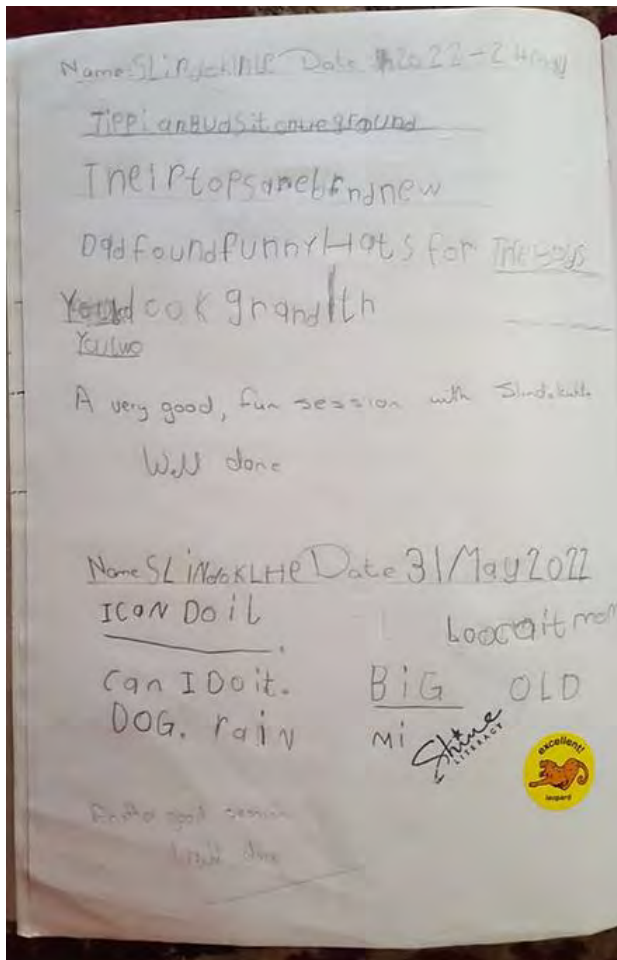 Name: SLiNdokUHLe Date 2022-24 May
TippianBudsitontheground
TneirtopsareBrandnew
DadfoundfunnyHats for THeBoys
cook grand
Youtwo
A very good, fun session with
Well done
Name SLiNdoKLHe Date 31/May2022
ICaN Do iL
Loocait mom
can I Do it.
BiG OLD
DOG. raiN
Mi
Shine
LITERACY
excellent!
leopard
good session
Well done